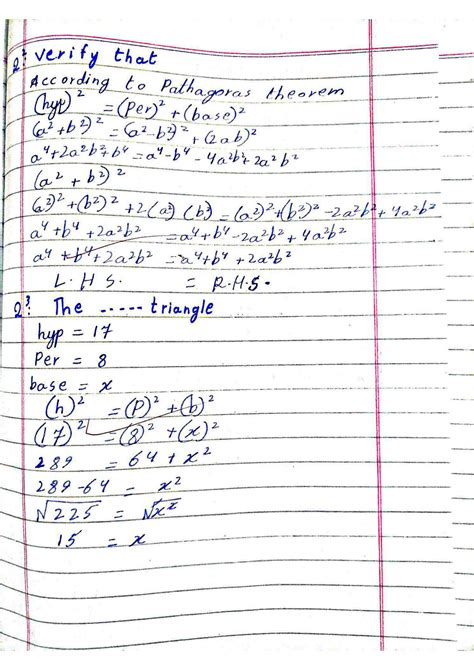 Q? verify that
According to Pathagoras theorem
(hyp)² = (Per)² + (base)²
(a² + b²)² = (a² - b²)² + (2ab)²
a⁴ + 2a²b² + b⁴ = a⁴ - b⁴ - 4a²b² + 2a²b²
(a² + b²)²
(a²)² + (b²)² + 2(a²)(b²) = (a²)² + (b²)² - 2a²b² + 4a²b²
a⁴ + b⁴ + 2a²b² = a⁴ + b⁴ - 2a²b² + 4a²b²
a⁴ + b⁴ + 2a²b² = a⁴ + b⁴ + 2a²b²
L.H.S. = R.H.S.
Q? The ----- triangle
hyp = 17
Per = 8
base = x
(h)² = (P)² + (b)²
(17)² = (8)² + (x)²
289 = 64 + x²
289 - 64 = x²
√225 = √x²
15 = x